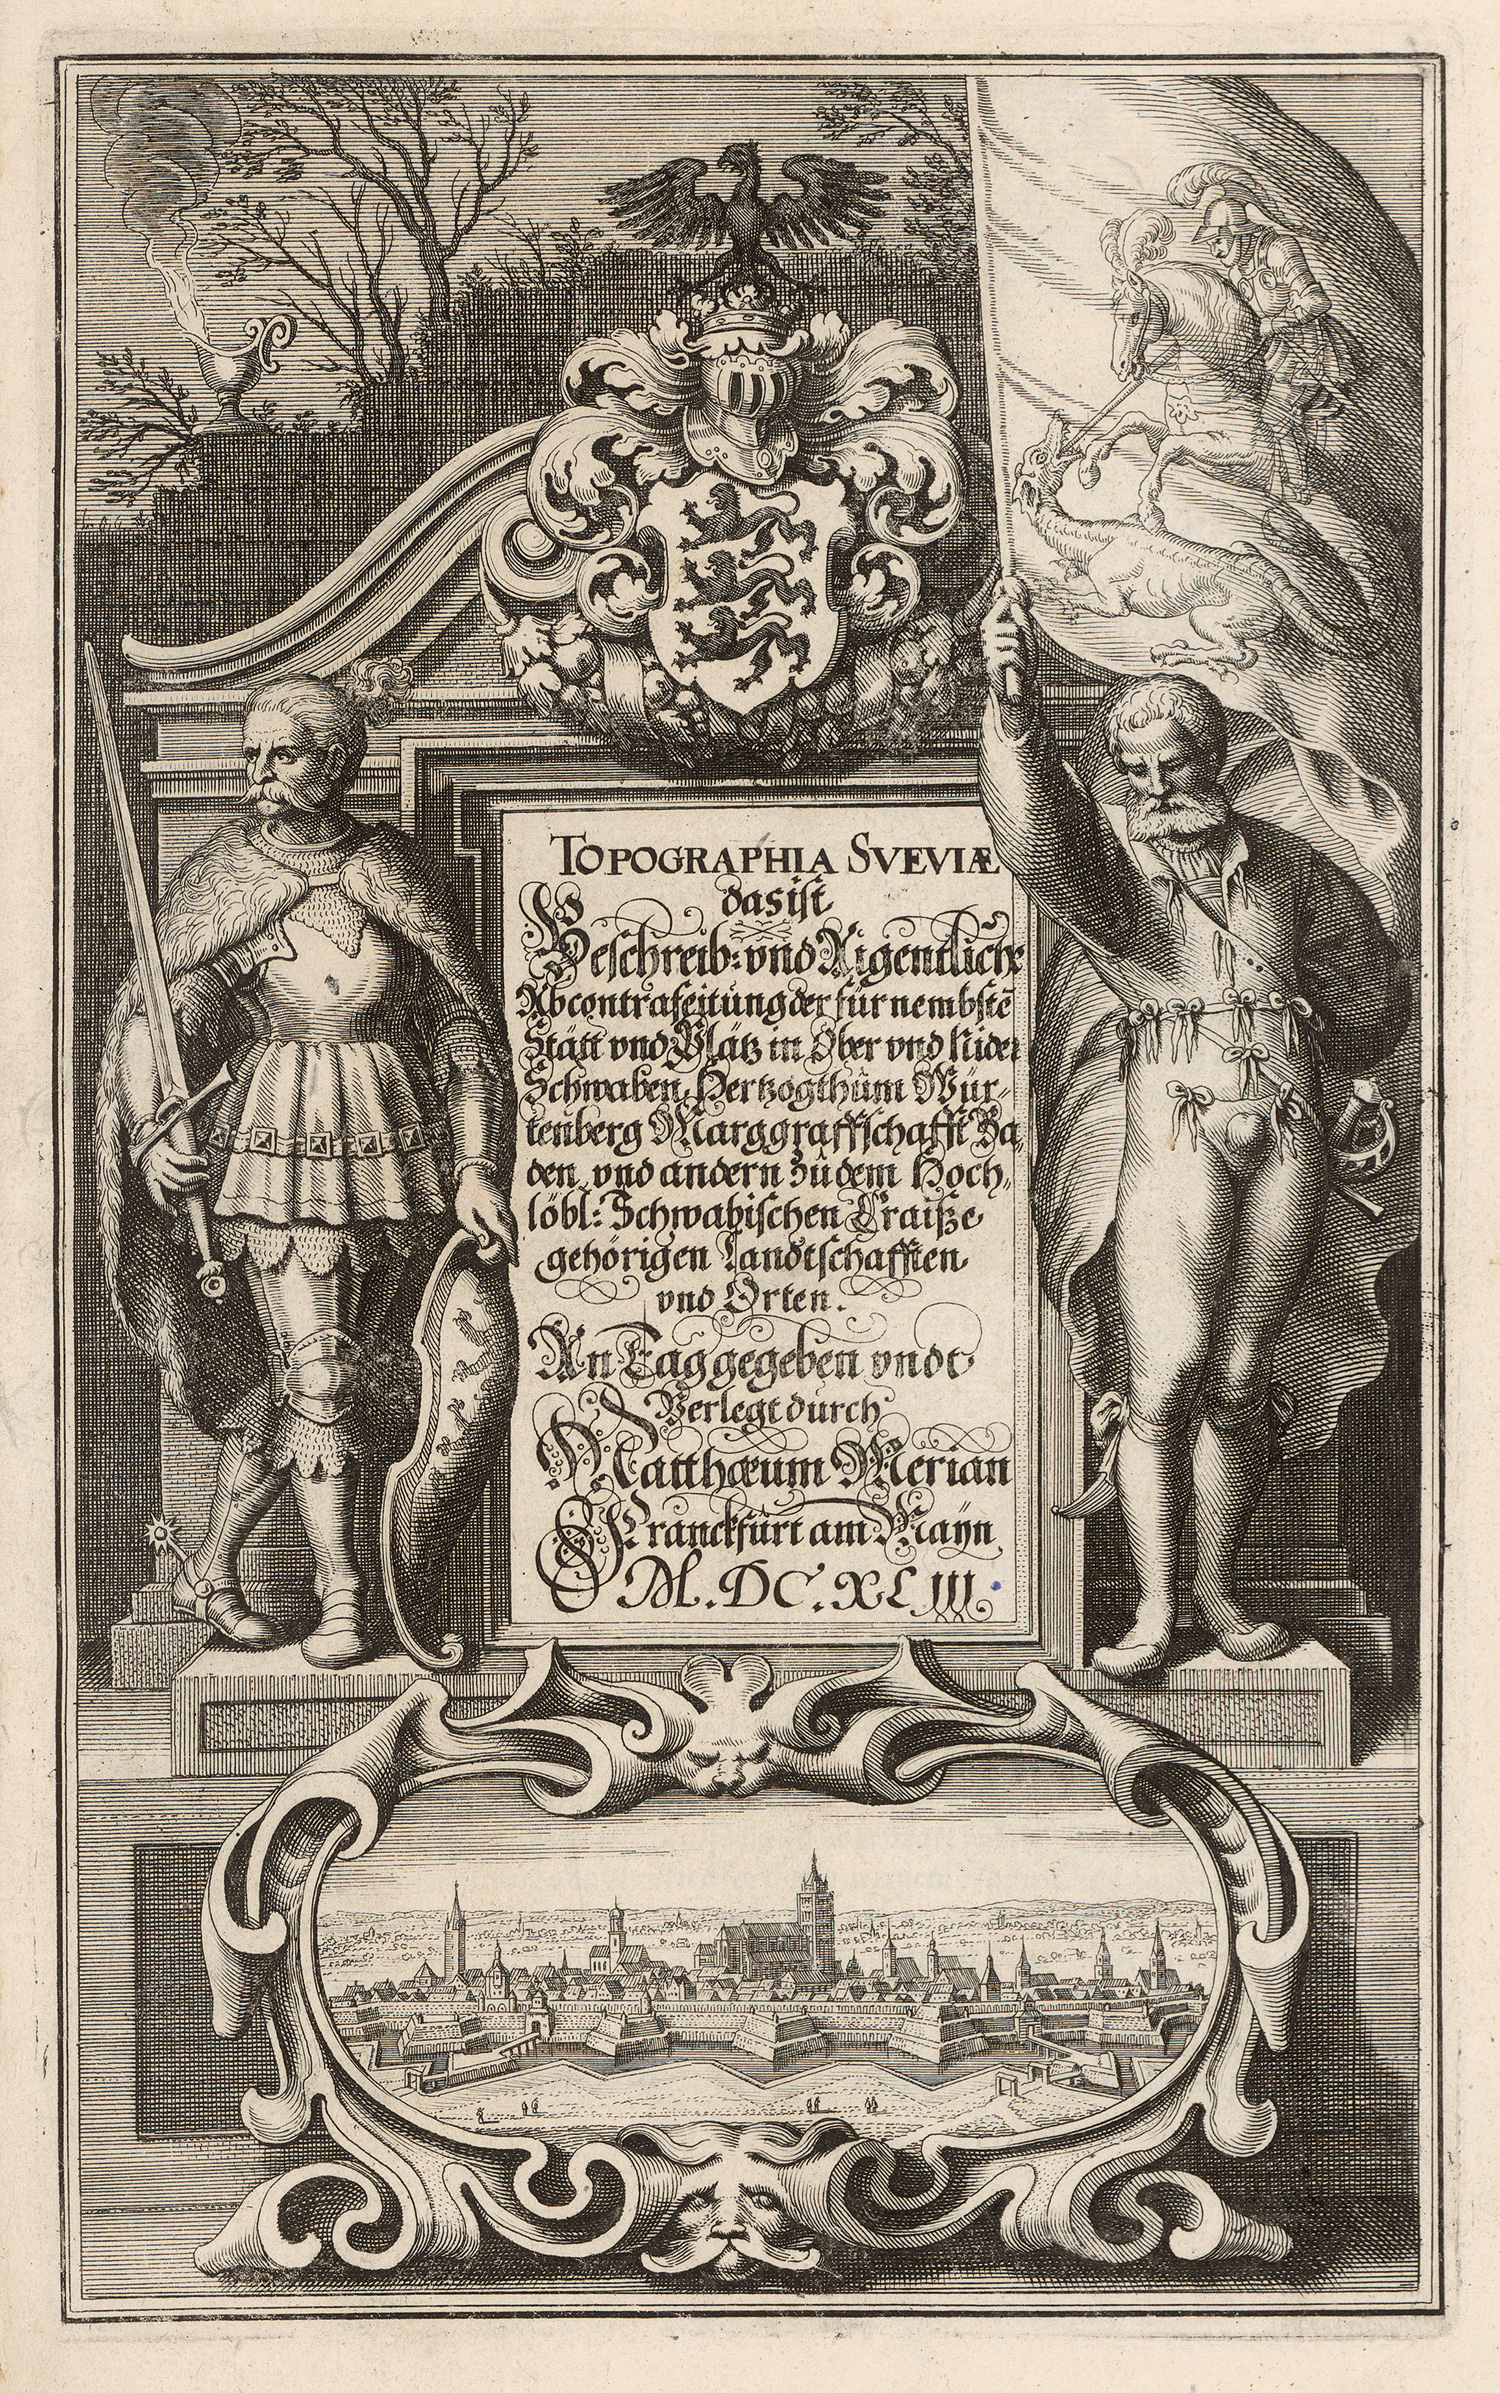 TOPOGRAPHIA SVEVIÆ
das ist
Beschreib: vnd Aigentliche
Abcontrafeitung der fürnembstē
Stätt vnd Plätz in Ober vnd Nider
Schwaben, Hertzogthům Wür-
tenberg Marggraffschafft Ba,
den, vnd andern zů dem Hoch,
löbl: Schwabischen Craiße
gehörigen Landtschafften
vnd Orten.
An Tag gegeben vndt
Verlegt durch
Matthæum Merian
Franckfürt am Mayn
M.DC.XLIII.